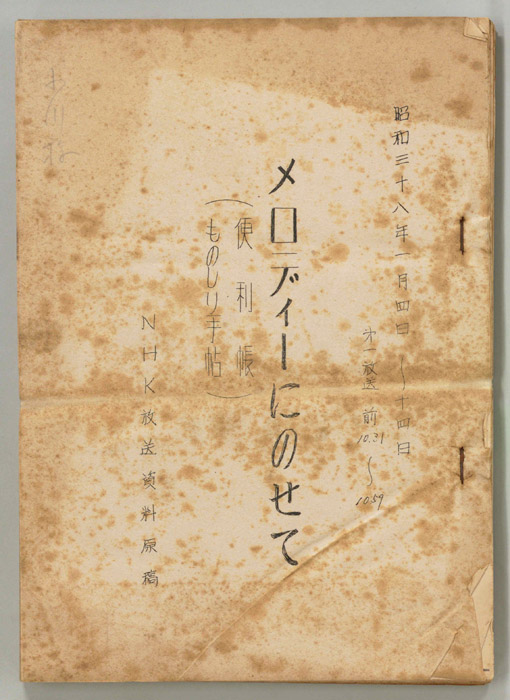 昭和三十八年一月四日〜十四日
第一放送 前10.31〜10.59
メロディーにのせて
(便利帳
ものしり手帖)
NHK放送資料原稿